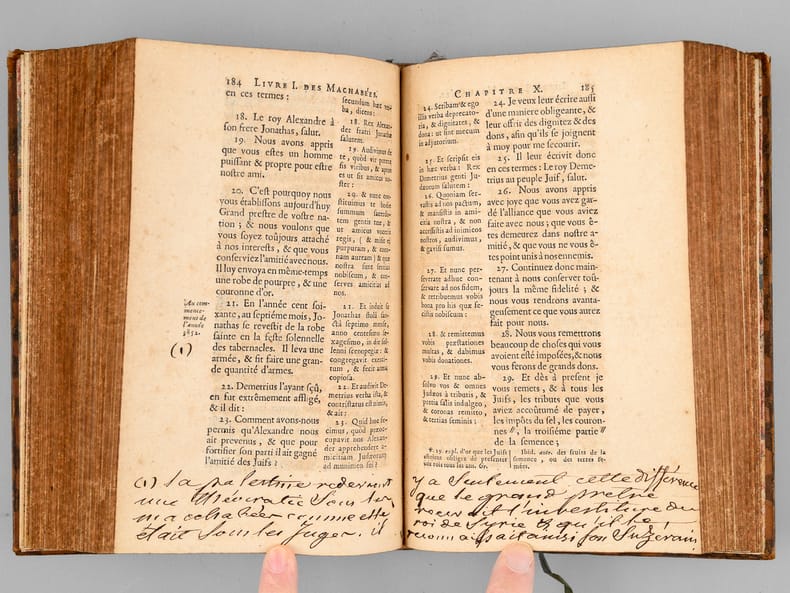 184 LIVRE I. DES MACHABE'ES.
en ces termes :
18. Le roy Alexandre à
son frere Jonathas, salut.
19. Nous avons appris
que vous estes un homme
puissant & propre pour estre
nostre ami.
20. C'est pourquoy nous
vous établissons aujourd'huy
Grand prestre de vostre na-
tion ; & nous voulons que
vous soyez toûjours attaché
à nos interests, & que vous
conserviez l'amitié avec nous.
Il luy envoya en même-temps
une robe de pourpre, & une
couronne d'or.
21. En l'année cent soi-
xante, au septiéme mois, Jo-
nathas se revestit de la robe
sainte en la feste solennelle
des tabernacles. Il leva une
armée, & fit faire une gran-
de quantité d'armes.
22. Demetrius l'ayant sçû,
en fut extrêmement affligé,
& il dit :
23. Comment avons-nous
permis qu'Alexandre nous
ait prevenus, & que pour
fortifier son parti il ait gagné
l'amitié des Juifs ?
secundum hæc ver-
ba, dicens :
18. Rex Alexan-
der fratri Jonathæ
salutem.
19. Audivimus de
te, quòd vir potens
sis viribus, & aptus
es ut sis amicus no-
ster :
20. & nunc con-
stituimus te hodie
summum sacerdo-
tem gentis tuæ, & ut
ut amicus voceris
regis, ( & misit ei
purpuram, & coro-
nam auream ) & quæ
nostra sunt sentias
nobiscum, & con-
serves amicitias ad
nos.
21. Et induit se
Jonathas stola sanc-
ta septimo mense,
anno centesimo se-
xagesimo, in die sol-
lenni scenopegiæ : &
congregavit exerci-
tum, & fecit arma
copiosa.
22. Et audivit De-
metrius verba ista, &
contristatus est nimis,
& ait :
23. Quid hoc fe-
cimus, quòd præoc-
cupavit nos Alexan-
der apprehendere a-
micitiam Judæorum
ad munimen sui ?
Au com-
mence-
ment de
l'année
3852.
(1)
(1) la palestine redevint
une théocratie sous les
machabées comme elle
était sous les juges. il
CHAPITRE X. 185
24. Scribam & ego
illis verba deprecato-
ria, & dignitates, &
dona : ut sint mecum
in adjutorium.
25. Et scripsit eis
in hæc verba : Rex
Demetrius genti Ju-
dæorum salutem :
26. Quoniam ser-
vastis ad nos pactum,
& mansistis in ami-
citia nostra, & non
accessistis ad inimicos
nostros, audivimus, &
gavisi sumus.
27. Et nunc per-
severate adhuc con-
servare ad nos fidem,
& retribuemus vobis
bona pro his quæ fe-
cistis nobiscum :
28. & remittemus
vobis præstationes
multas, & dabimus
vobis donationes.
29. Et nunc ab-
solvo vos & omnes
Judæos à tributis, &
pretia salis indulgeo,
& coronas remitto,
& tertias seminis :
24. Je veux leur écrire aussi
d'une maniere obligeante, &
leur offrir des dignitez & des
dons, afin qu'ils se joignent
à moy pour me secourir.
25. Il leur écrivit donc
en ces termes : Le roy Deme-
trius au peuple Juif, salut.
26. Nous avons appris
avec joye que vous avez gar-
dé l'alliance que vous aviez
faite avec nous ; que vous ê-
tes demeurez dans nostre a-
mitié, & que vous ne vous ê-
tes point unis à nos ennemis.
27. Continuez donc main-
tenant à nous conserver toû-
jours la même fidelité ; &
nous vous rendrons avanta-
geusement ce que vous aurez
fait pour nous.
28. Nous vous remettrons
beaucoup de choses qui vous
avoient esté imposées, & nous
vous ferons de grands dons.
29. Et dès à present je
vous remets, & à tous les
Juifs, les tributs que vous
aviez accoûtumé de payer,
les impôts du sel, les couron-
nes ", la troisiéme partie "
de la semence ;
℣. 29. expl. d'or que les Juifs
estoient obligez de presenter
aux rois tous les ans. Gr.
Ibid. autr. des fruits de la
semence, ou des terres se-
mées.
y a seulement cette différence
que le grand prêtre
recevait l'investiture du
roi de Syrie & qu'il le
reconnaissait ainsi son suzerain.